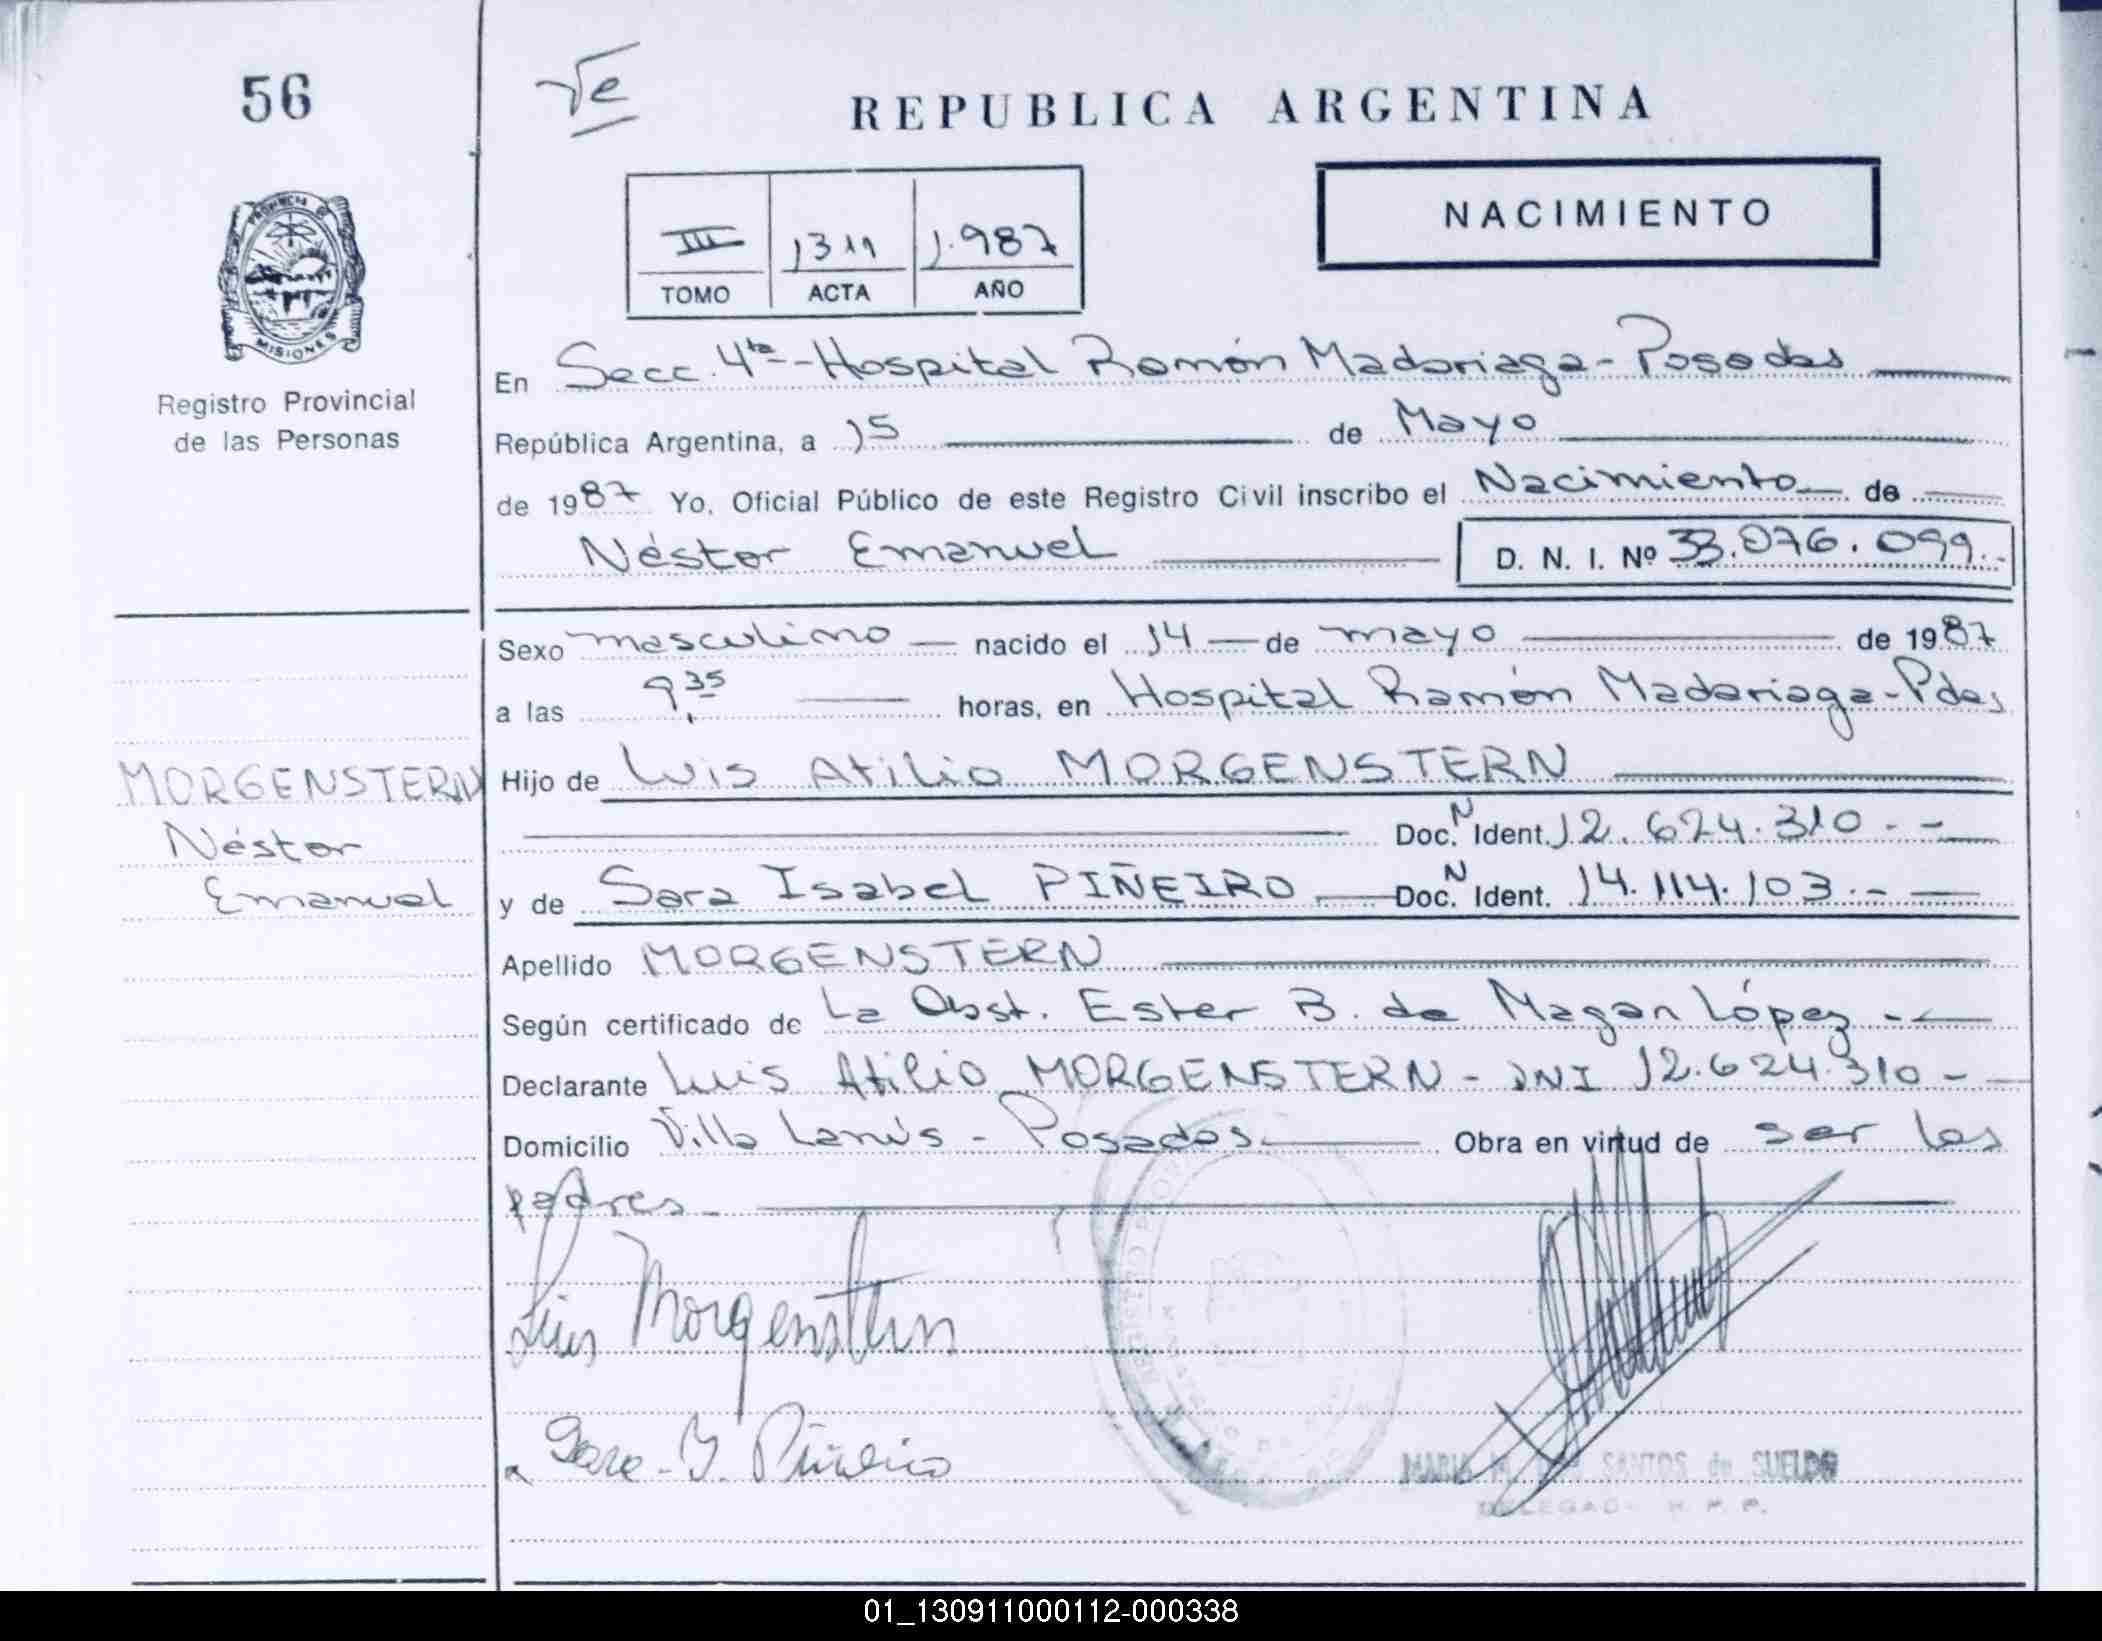 56
Ve
REPUBLICA ARGENTINA
NACIMIENTO
III 1311 1.987
TOMO ACTA AÑO
PROVINCIA DE
MISIONES
Registro Provincial
de las Personas
En Secc. 4ta - Hospital Ramón Madariaga - Posadas
República Argentina, a 15 de Mayo
de 1987 Yo, Oficial Público de este Registro Civil inscribo el Nacimiento de
Néstor Emanuel D. N. I. Nº 33.076.099.-
Sexo masculino nacido el 14 de mayo de 1987
a las 9,35 horas, en Hospital Ramón Madariaga - Pdas
MORGENSTERN
Néstor
Emanuel
Hijo de Luis Atilio MORGENSTERN
Doc. N Ident. 12.624.310.-
y de Sara Isabel PIÑEIRO Doc. N Ident. 14.114.103.-
Apellido MORGENSTERN
Según certificado de La Obst. Ester B. de Magan López.-
Declarante Luis Atilio MORGENSTERN - DNI 12.624.310-
Domicilio Villa Lanús - Posadas.- Obra en virtud de ser los
padres.-
Luis Morgenstern
Sara. I. Piñeiro
SANTOS de SUELDO
01_130911000112-000338